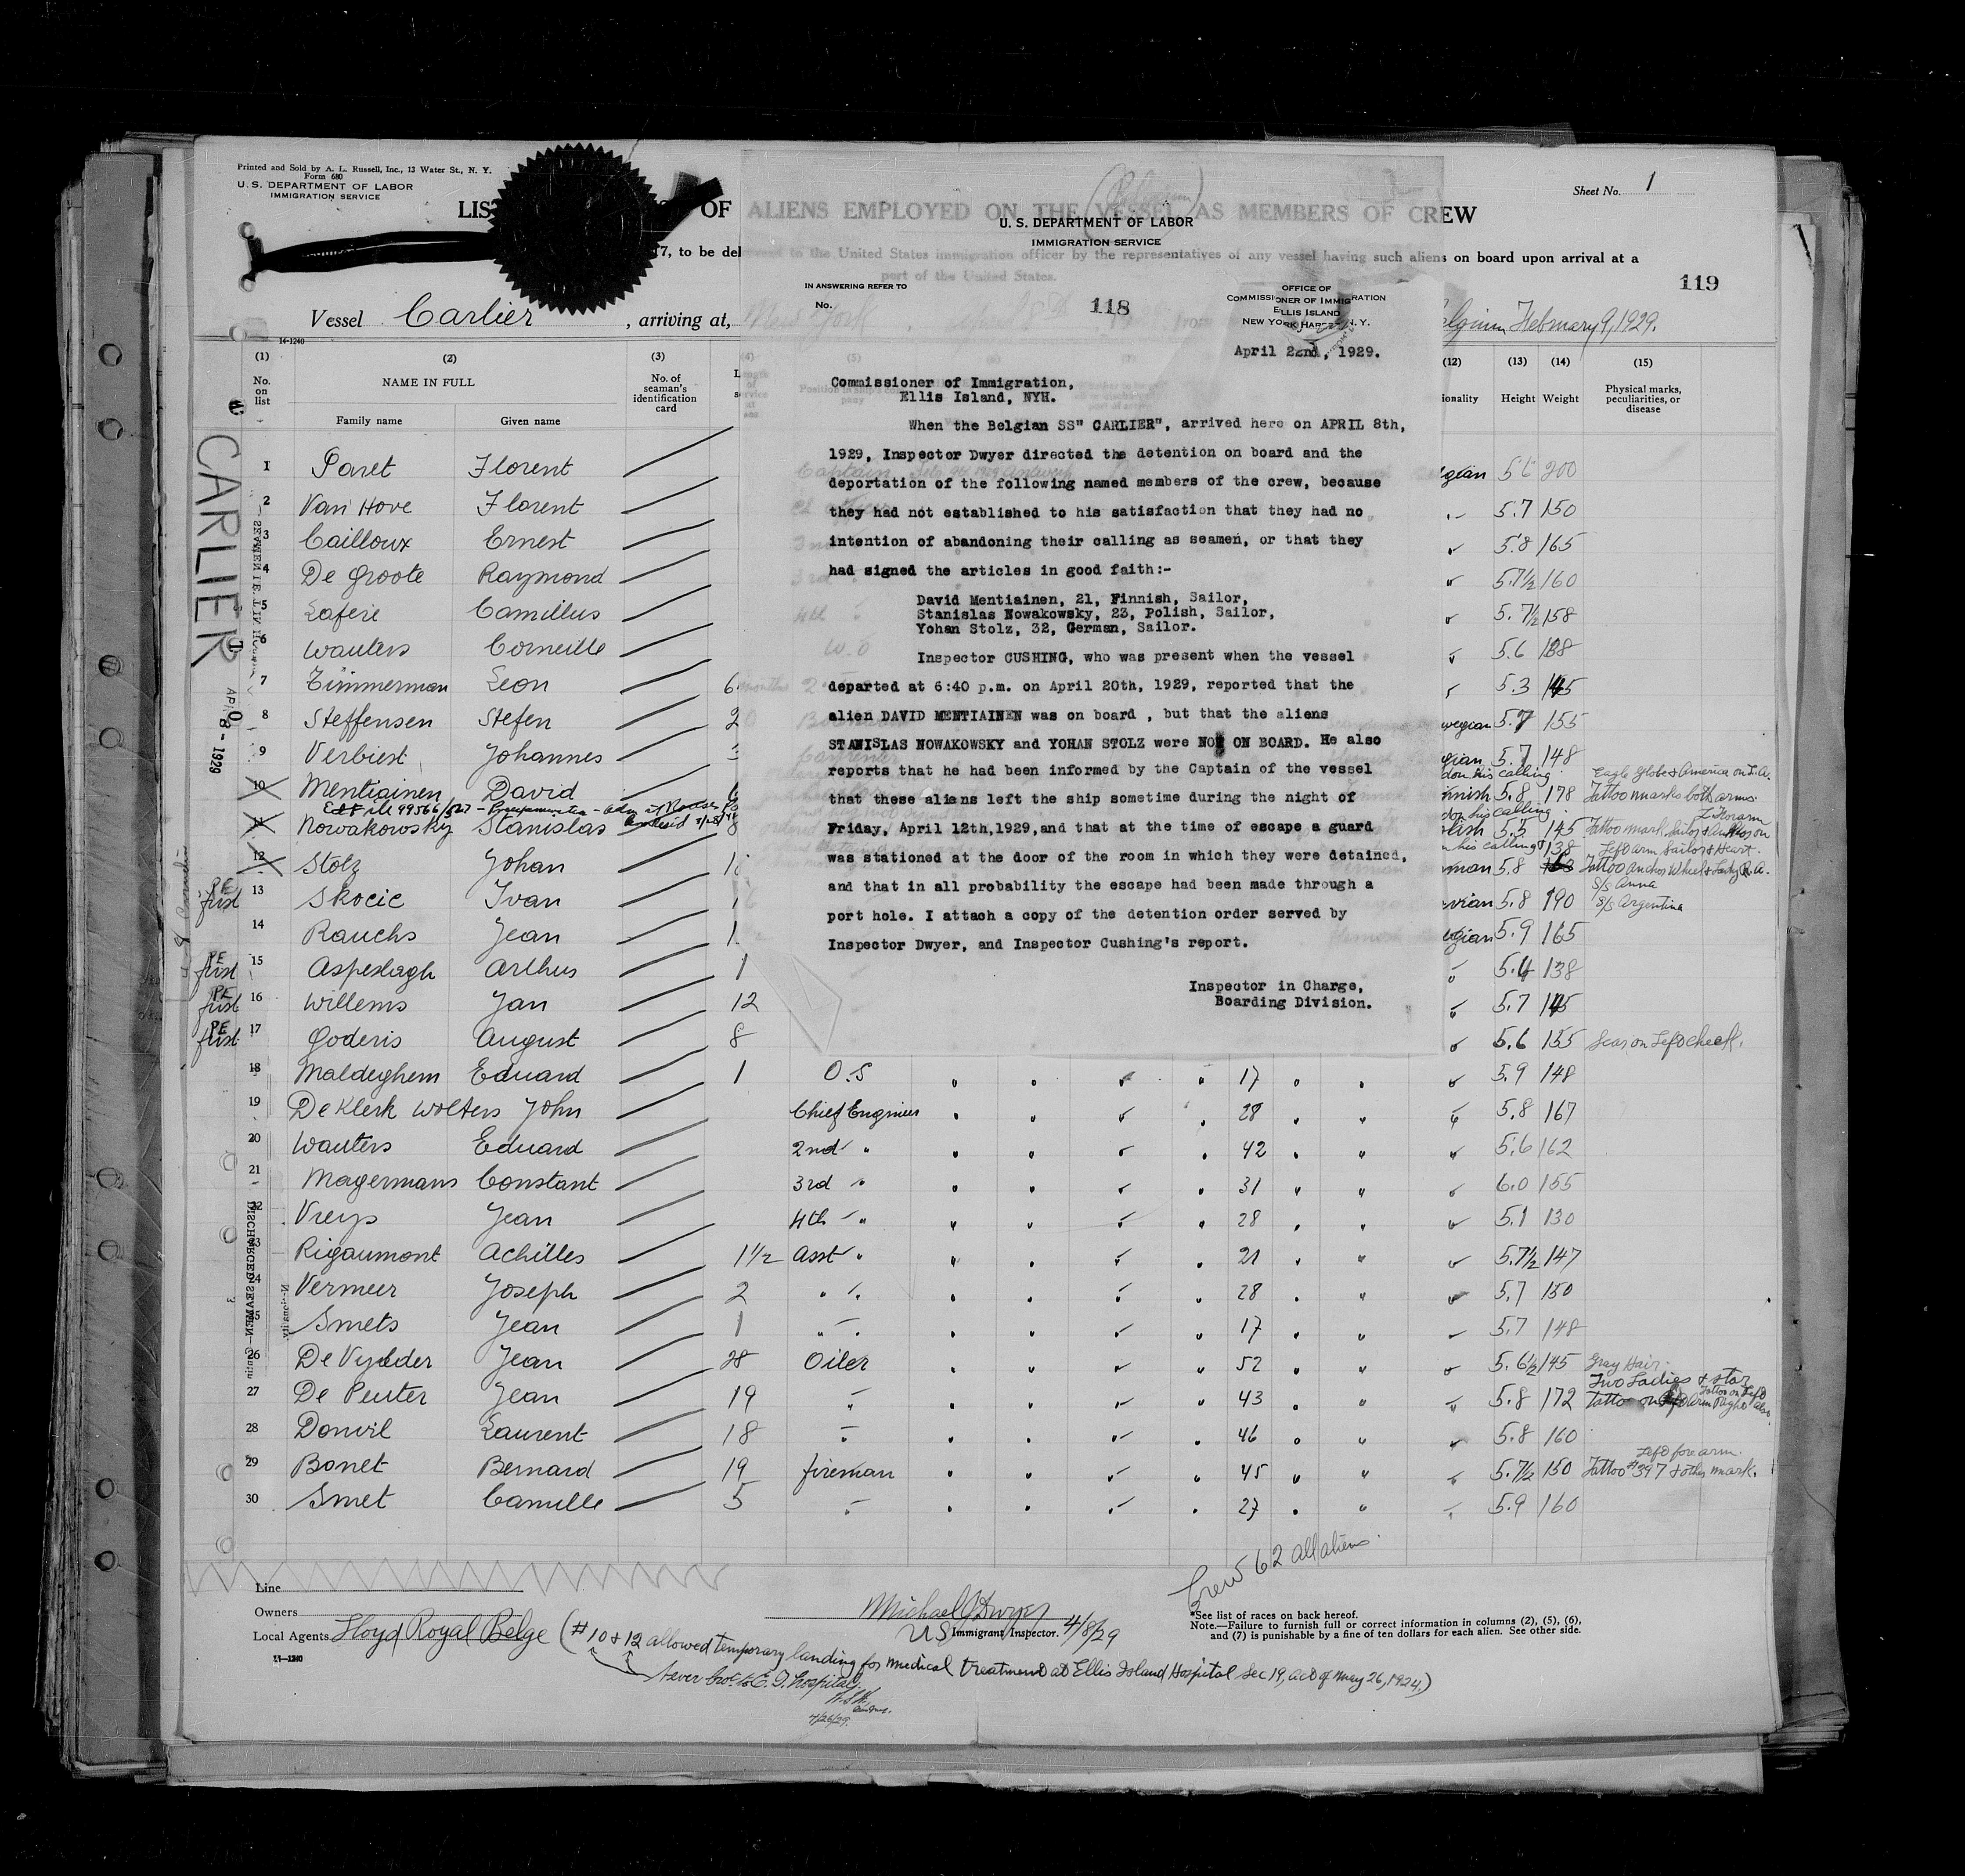 Printed and Sold by A. L. Russell, Inc., 13 Water St., N. Y.
Form 680
U. S. DEPARTMENT OF LABOR
IMMIGRATION SERVICE
Sheet No. 1
LIS OF ALIENS EMPLOYED ON THE VESSEL AS MEMBERS OF CREW
17, to be del to the United States immigration officer by the representatives of any vessel having such aliens on board upon arrival at a
port of the United States.
119
Vessel Carlier, arriving at, New York
elgium February 9, 1929.
14-1240
U. S. DEPARTMENT OF LABOR
IMMIGRATION SERVICE
IN ANSWERING REFER TO
No.
118
OFFICE OF
COMMISSIONER OF IMMIGRATION
ELLIS ISLAND
NEW YORK HARBOR N. Y.
April 22nd, 1929.
Commissioner of Immigration,
Ellis Island, NYH.
When the Belgian SS" CARLIER", arrived here on APRIL 8th,
1929, Inspector Dwyer directed the detention on board and the
deportation of the following named members of the crew, because
they had not established to his satisfaction that they had no
intention of abandoning their calling as seamen, or that they
had signed the articles in good faith:-
David Mentiainen, 21, Finnish, Sailor,
Stanislas Nowakowsky, 23, Polish, Sailor,
Yohan Stolz, 32, German, Sailor.
Inspector CUSHING, who was present when the vessel
departed at 6:40 p.m. on April 20th, 1929, reported that the
alien DAVID MENTIAINEN was on board , but that the aliens
STANISLAS NOWAKOWSKY and YOHAN STOLZ were NOT ON BOARD. He also
reports that he had been informed by the Captain of the vessel
that these aliens left the ship sometime during the night of
Friday, April 12th,1929,and that at the time of escape a guard
was stationed at the door of the room in which they were detained,
and that in all probability the escape had been made through a
port hole. I attach a copy of the detention order served by
Inspector Dwyer, and Inspector Cushing's report.
Inspector in Charge,
Boarding Division.
(1) (2) (3) (12) (13) (14) (15)
No. on list NAME IN FULL No. of seaman's identification card ionality Height Weight Physical marks, peculiarities, or disease
Family name Given name
CARLIER
APR 8 - 1929
1 Paret Florent gian 5.6 200
2 Van Hove Florent 5.7 150
3 Cailloux Ernest 5.8 165
4 De Groote Raymond 5.7½ 160
5 Lafere Camillus 5.7½ 158
6 Wauters Corneille 5.6 138
7 Zimmerman Leon 6 5.3 145
8 Steffensen Stefen 2 wegian 5.7 155
9 Verbiest Johannes gian 5.7 148
don his calling Eagle Globe & America on L.A.
10 Mentiainen David 6 nnish 5.8 178 Tattoo marks both arms.
don his calling L Forarm
11 Nowakowsky Stanislas 8 lish 5.5 145 Tattoo mark Sailor & Anchor on
his calling 138 Left arm Sailor & Heart.
12 Stolz Johan man 5.8 Tattoo Anchor Wheel & Lady R.A.
S/S Anna
PE first 13 Skocic Ivan vian 5.8 190 S/S Argentina
14 Rauchs Jean 1 gian 5.9 165
PE first 15 Aspeslagh Arthus 1 5.4 138
PE first 16 Willems Jan 12 5.7 145
PE first 17 Goderis August 8 5.6 155 Scar on Left cheek.
18 Maldeghem Eduard 1 O.S 17 5.9 148
19 De Klerk Wolters John Chief Engineer 28 5.8 167
20 Wauters Eduard 2nd " 42 5.6 162
21 Magermans Constant 3rd " 31 6.0 155
22 Vreys Jean 4th " 28 5.1 130
23 Rigaumont Achilles 1½ Asst " 21 5.7½ 147
24 Vermeer Joseph 2 " " 28 5.7 150
25 Smets Jean 1 " " 17 5.7 148
26 De Vylder Jean 28 Oiler 52 5.6½ 145 Gray Hair.
Two Ladies & star
27 De Peuter Jean 19 " 43 5.8 172 Tattoo on Arm Right
28 Donvil Laurent 18 " 46 5.8 160
Left forearm.
29 Bonet Bernard 19 fireman 45 5.7½ 150 Tattoo #397 & other mark.
30 Smet Camille 5 " 27 5.9 160
Crew 62 all aliens.
Line
Owners
Local Agents Lloyd Royal Belge
Michael J Dwyer
US Immigrant Inspector. 4/8/29
*See list of races on back hereof.
Note.—Failure to furnish full or correct information in columns (2), (5), (6),
and (7) is punishable by a fine of ten dollars for each alien. See other side.
14—1240
(# 10 & 12 allowed temporary landing for medical treatment at Ellis Island Hospital Sec 19, act of may 26, 1924.)
Never bro. to E. I. Hospital.
4/26/29.